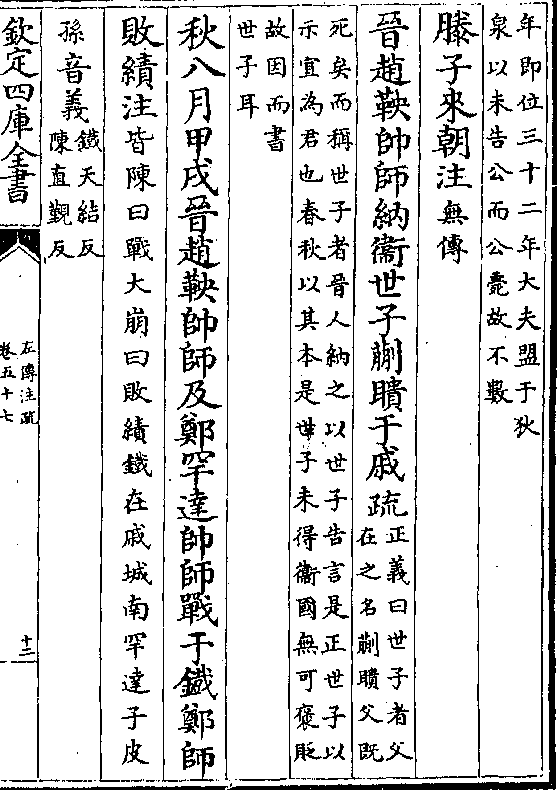 年即位三十二年大夫盟于狄
泉以未告公而公薨故不數
滕子來朝注無傳
晉趙鞅帥師納衞世子蒯聵于戚疏正義曰世子者父
在之名蒯聵父既
死矣而稱世子者晉人納之以世子告言是正世子以
示宜為君也春秋以其本是世子未得衞國無可褒貶
故因而書
世子耳
秋八月甲戌晉趙鞅帥師及鄭罕達帥師戰于鐵鄭師
敗績注皆陳曰戰大崩曰敗績鐵在戚城南罕達子皮
孫音義鐵天結反
陳直覲反
欽定四庫全書
左傳注疏
卷五十七
十二